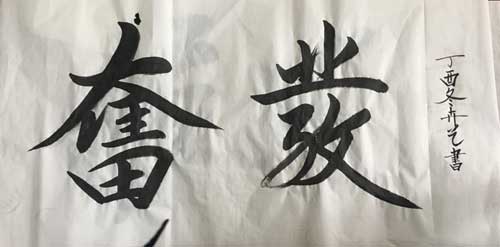 奮發
丁酉冬卉艺書